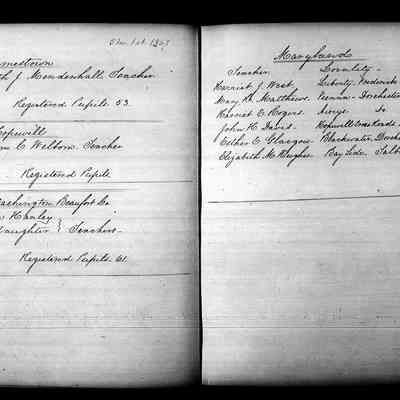 mestown
h J. Mendenhall, Teacher
Registered Pupils 53.
Hopewill
C. Welborn, Teacher
Registered Pupils
Washington Beaufort Co.
Hanley
daughter } Teachers.
Registered Pupils 61.
Maryland
Teacher. Locality.
Harriet J. West. Liberty, Frederick
Mary R. Matthews. Vienna. Dorchester
Harriet C. Rogers. Aireys. Do
John H. David. Hopewell Cross Roads.
Esther C. Glasgow. Blackwater, Dorch
Elizabeth McHugher. Bay Side, Talb